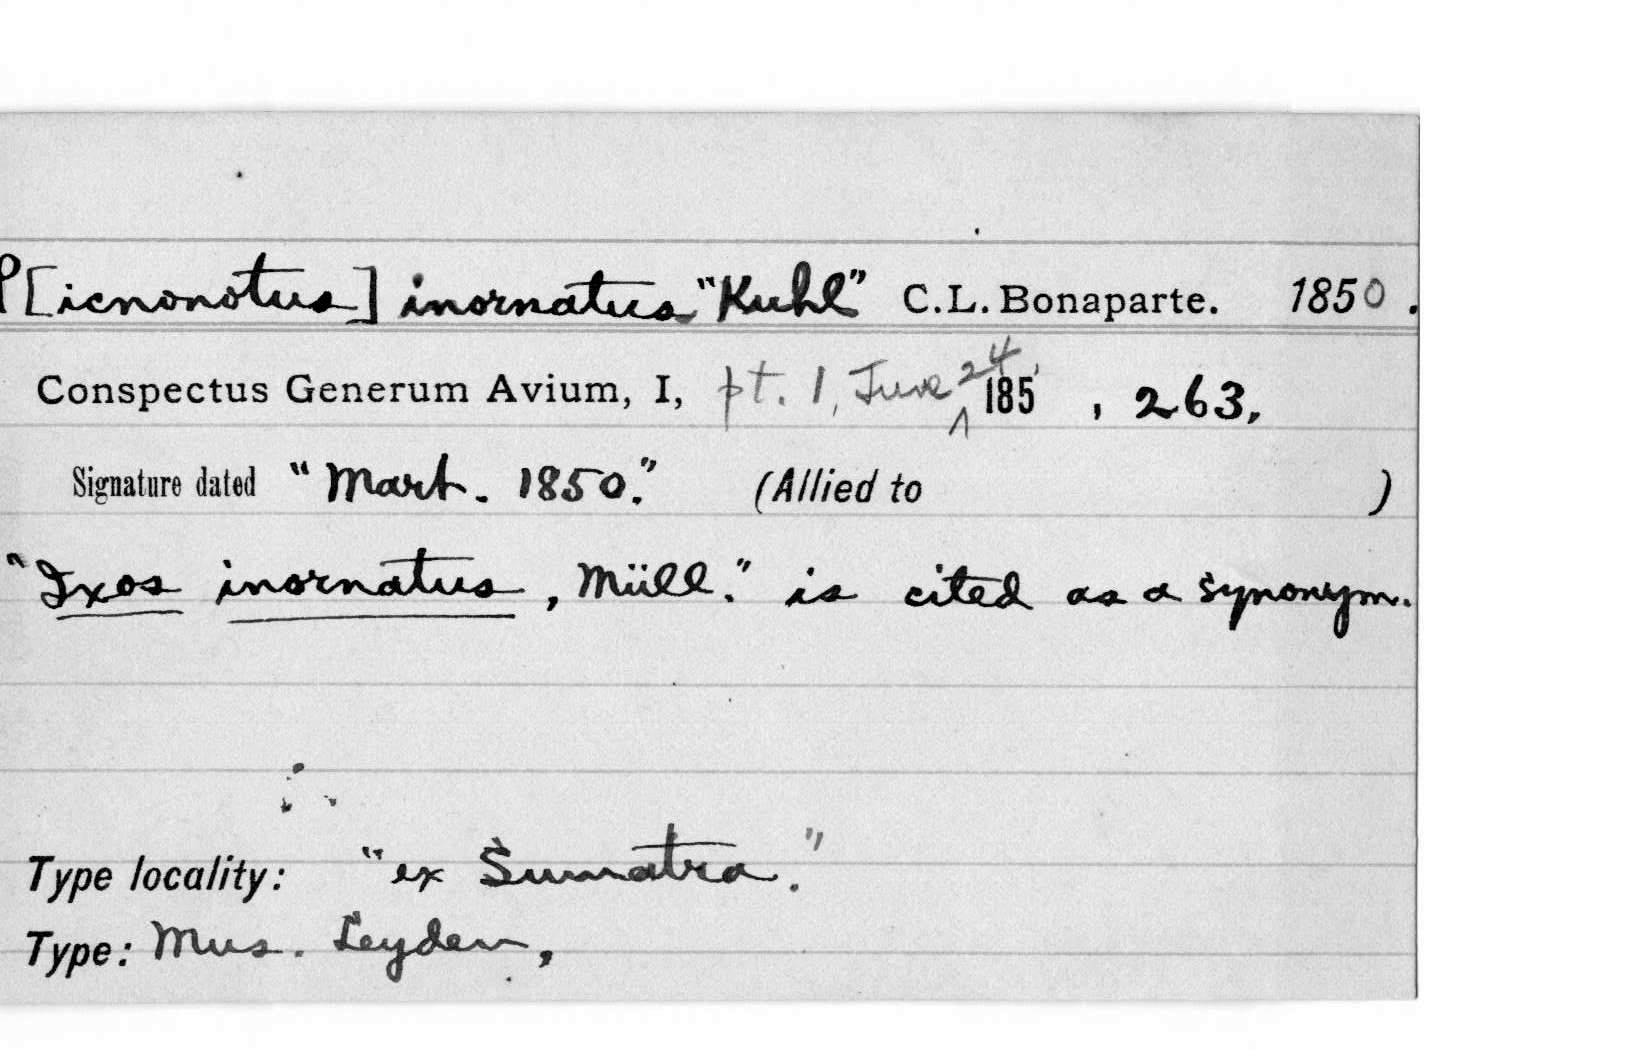 P[icnonotus] inornatus "Kuhl" C.L. Bonaparte. 1850.
Conspectus Generum Avium, I, pt. 1, June 24, 185 , 263,
Signature dated "Mart. 1850." (Allied to )
"Ixos inornatus, Müll." is cited as a synonym.
Type locality: "ex Sumatra."
Type: Mus. Leyden,